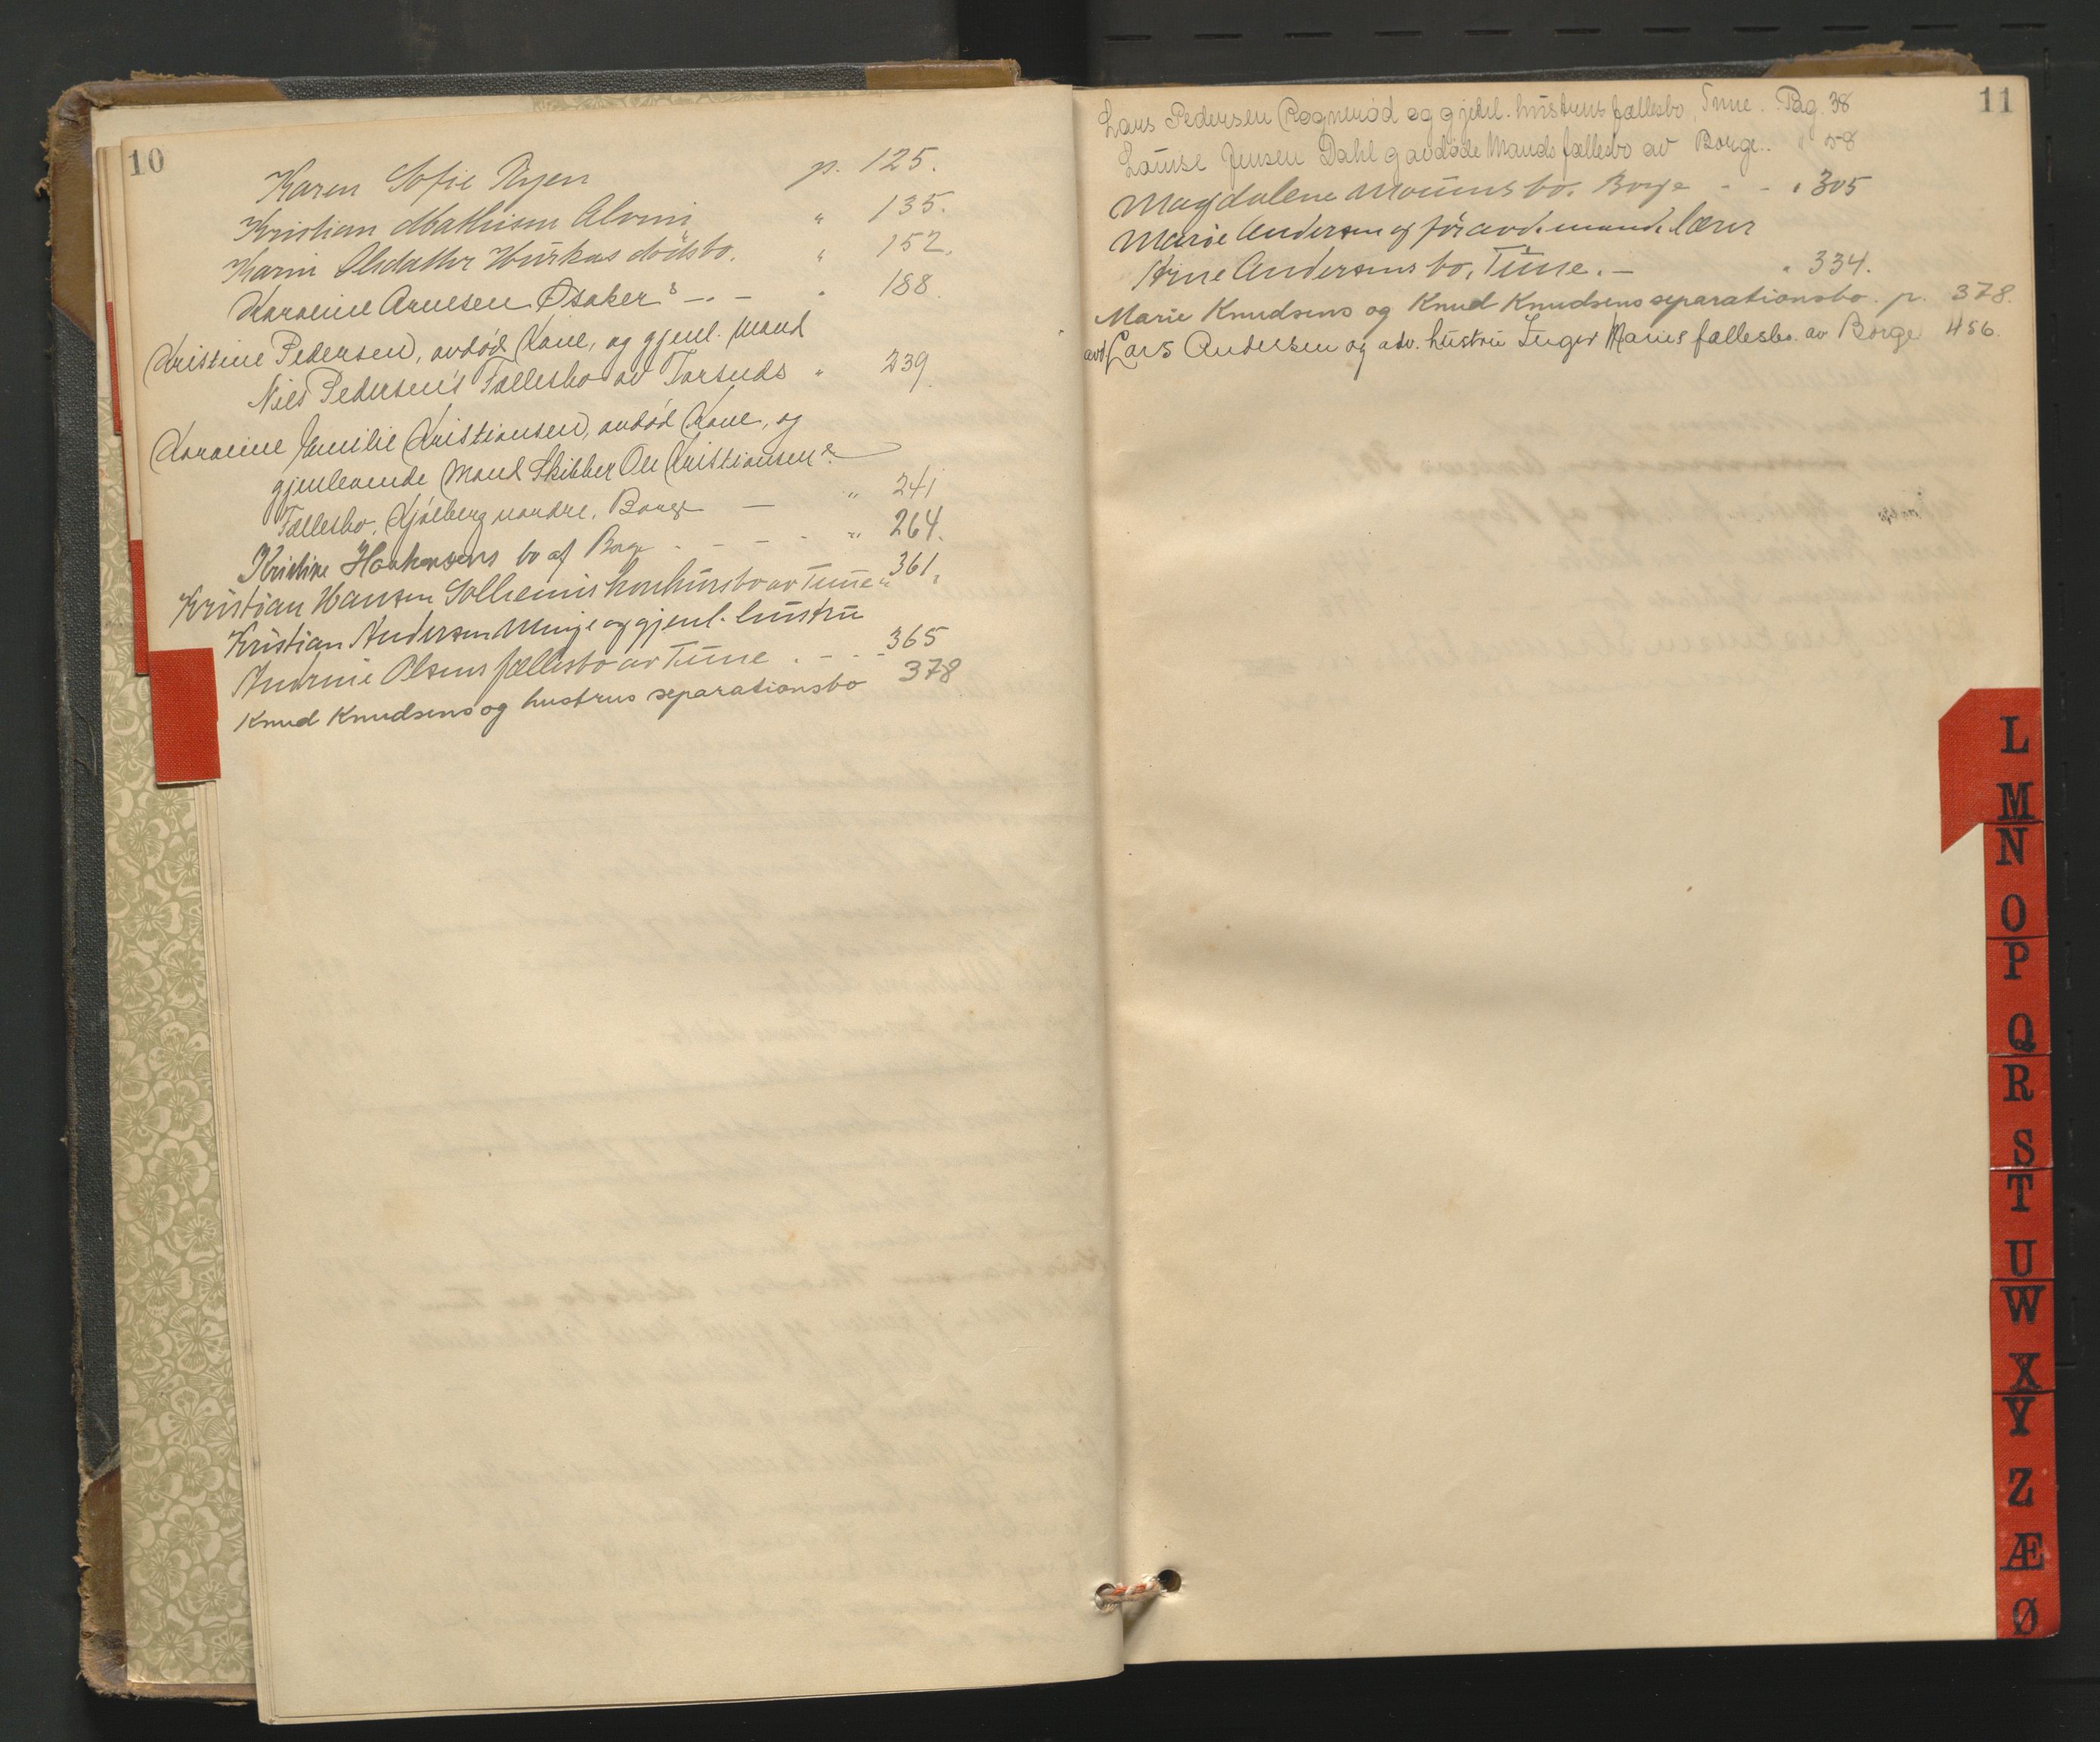 10
Karen Sofie Ryen p. 125.
Kristian Mathisen Alvim " 135.
Karin Olsdatter Hürkas dödsbo. " 152.
Karoline Arnesen Øsaker's " 188
Kristine Pedersen, avdød Kone, og gjenl. Mand
Niels Pedersen's Fællesbo av Torsnes " 239.
Karoline Emilie Kristiansen, avdød Kone, og
gjenlevende Mand Skibber Ole Kristiansen's
Fællesbo, Kjølberg nordre, Borge — " 241
Kristine Haakensens bo af Borge - - - - " 264.
Kristian Hansen Solheims konkursbo av Tune " 361.
Kristian Andersen Minge og gjenl. hustru
Andrine Olsens fællesbo av Tune . - . - 365
Knud Knudsens og hustrus separationsbo 378
11
Lars Pedersen Rognerød og gjenl. hustrus fællesbo, Tune. Pag. 38
Lovise Jensen Dahl g avdøde Mands fællesbo av Borge.. " 58
Magdalene Moums bo. Borge - - " 305
Marie Andersen og før avd. mand lærer
Arne Andersens bo, Tune. — " 334.
Marie Knudsens og Knud Knudsens separationsbo. p. 378.
avd. Lars Andersen og adv. hustru Inger Maries fællesbo. av Borge 456.
L
M
N
O
P
Q
R
S
T
U
W
X
Y
Z
Æ
Ø